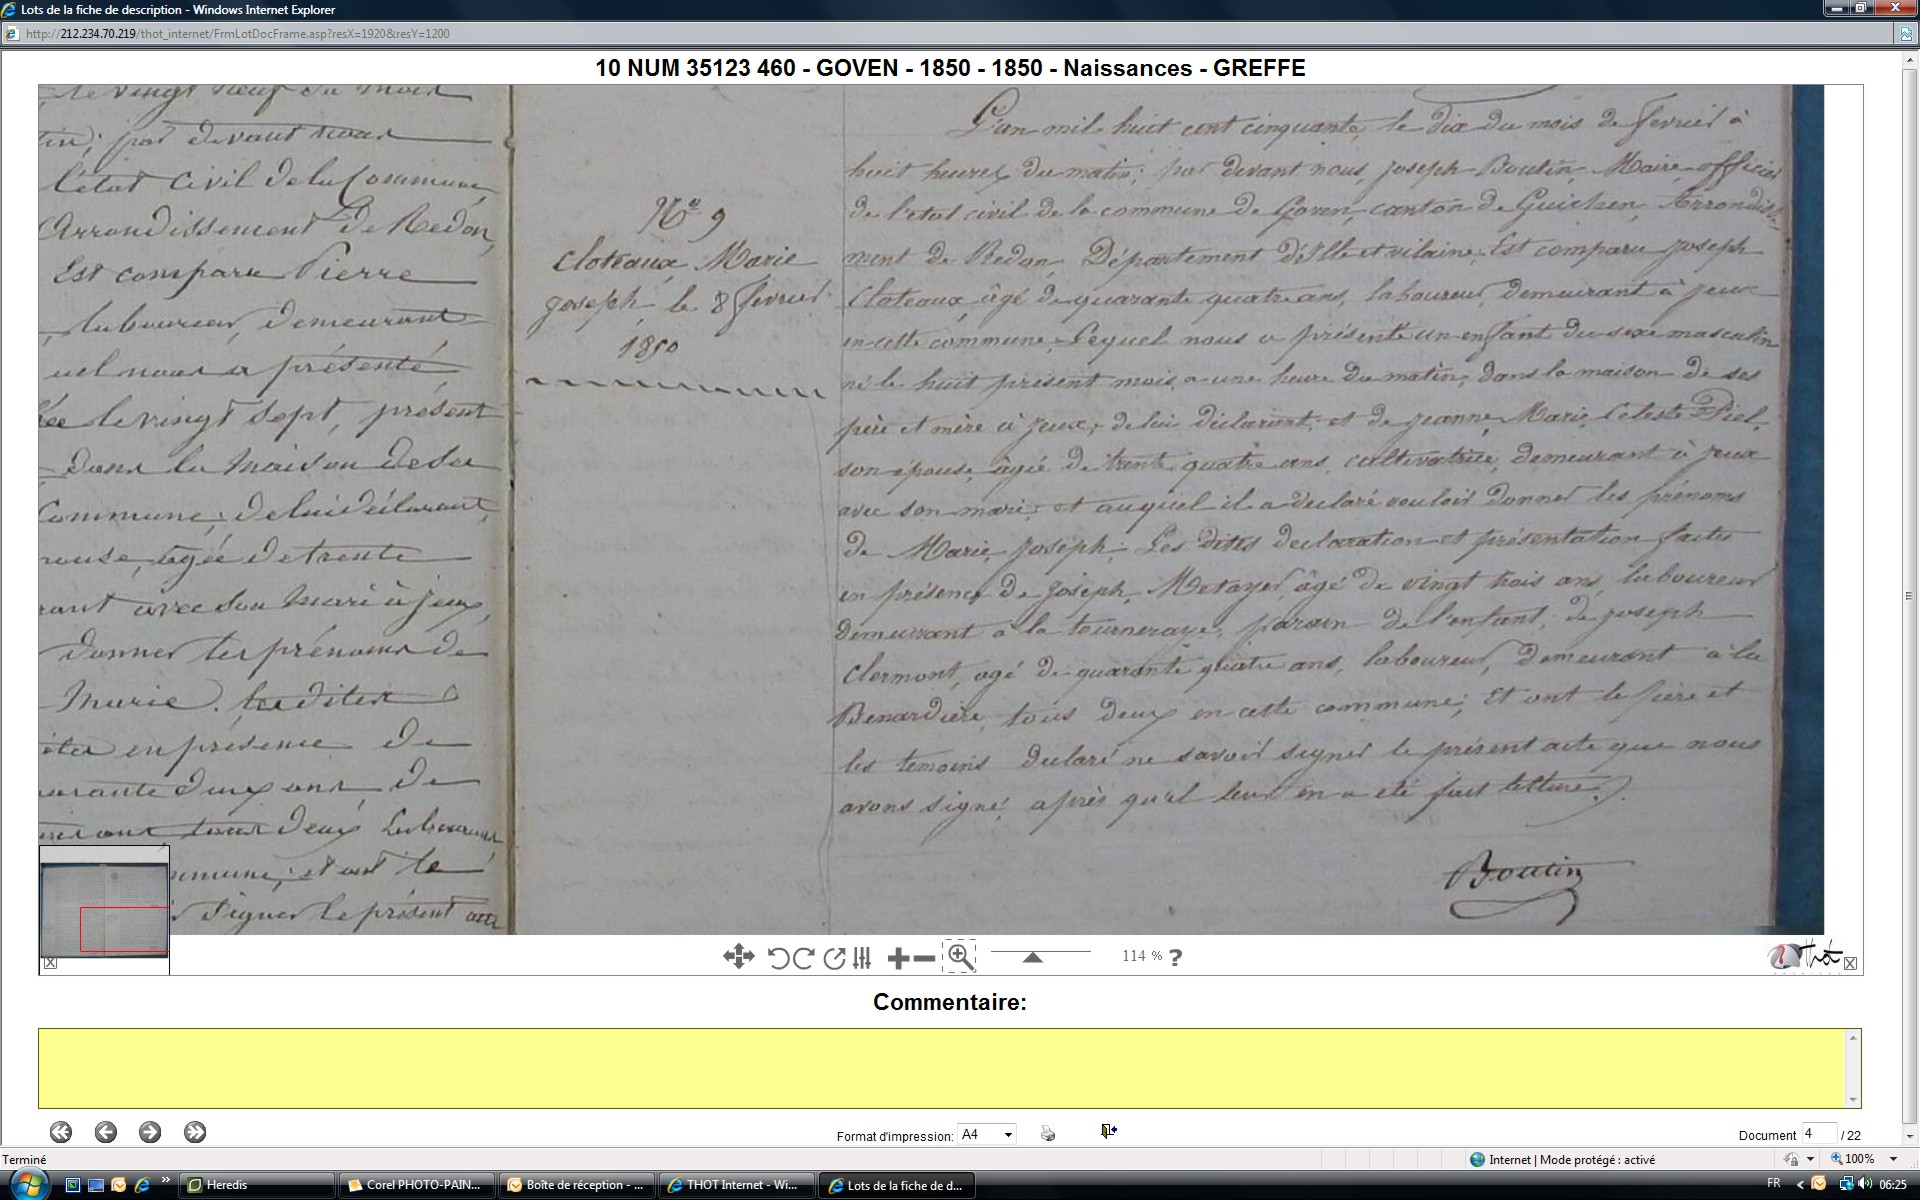 Lots de la fiche de description - Windows Internet Explorer
http://212.234.70.219/thot_internet/FrmLotDocFrame.asp?resX=1920&resY=1200
10 NUM 35123 460 - GOVEN - 1850 - 1850 - Naissances - GREFFE
le vingt neuf du mois
tin; par devant nous
l'état civil de la Commune
Arrondissement de Redon,
Est comparu Pierre
laboureur, demeurant
uel nous a présenté
née le vingt sept, présent
dans la maison de ses
Commune; de lui déclarant,
pouse, agée de trente
rant avec son mari à jeux,
donner les prénoms de
Marie. les dites
ites en présence de
uarante deux ans, de
tous deux Laboureurs
mmune; et ont le
signer le présent acte
Nº 9
Cloteaux Marie
joseph, le 8 fevrier
1850
L'an mil huit cent cinquante, le dix du mois de fevrier à
huit heures du matin; par devant nous, joseph Boutin, Maire officier
de l'etat civil de la commune de Goven, canton de Guichen, Arrondisse-
ment de Redon, Département d'Ille et vilaine; Est comparu joseph
Cloteaux, âgé de quarante quatre ans, laboureur, demeurant à jeux
en cette commune; Lequel nous a présenté un enfant du sexe masculin
né le huit présent mois, a une heure du matin, dans la maison de ses
père et mère à jeux; de lui déclarant; et de jeanne, Marie, Celeste Piel,
son épouse, âgée de trente quatre ans, cultivatrice, demeurant à jeux
avec son mari; et auquel il a déclaré vouloir donner les prénoms
de Marie, joseph. Les dites declaration et présentation faites
en présence de joseph, Metayer, âgé de vingt trois ans, laboureur
demeurant à la tourneraye, parain de l'enfant; de joseph
Clermont, agé de quarante quatre ans, laboureur, demeurant à la
Benardière, tous deux en cette commune; Et ont le père et
les temoins declaré ne savoir signer le présent acte que nous
avons signé, après qu'il leur en a été fait letture.
Boutin
114 % ?
Thot
Commentaire:
Format d'impression: A4
Document 4 / 22
Terminé
Internet | Mode protégé : activé
100%
Heredis
Corel PHOTO-PAIN...
Boîte de réception - ...
THOT Internet - Wi...
Lots de la fiche de d...
FR
06:25